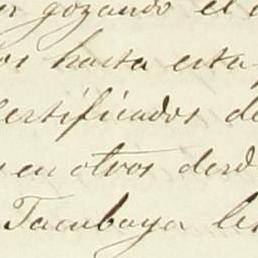 gozando el
os hasta esta
Certificados de
en otros desd
Tacubaya